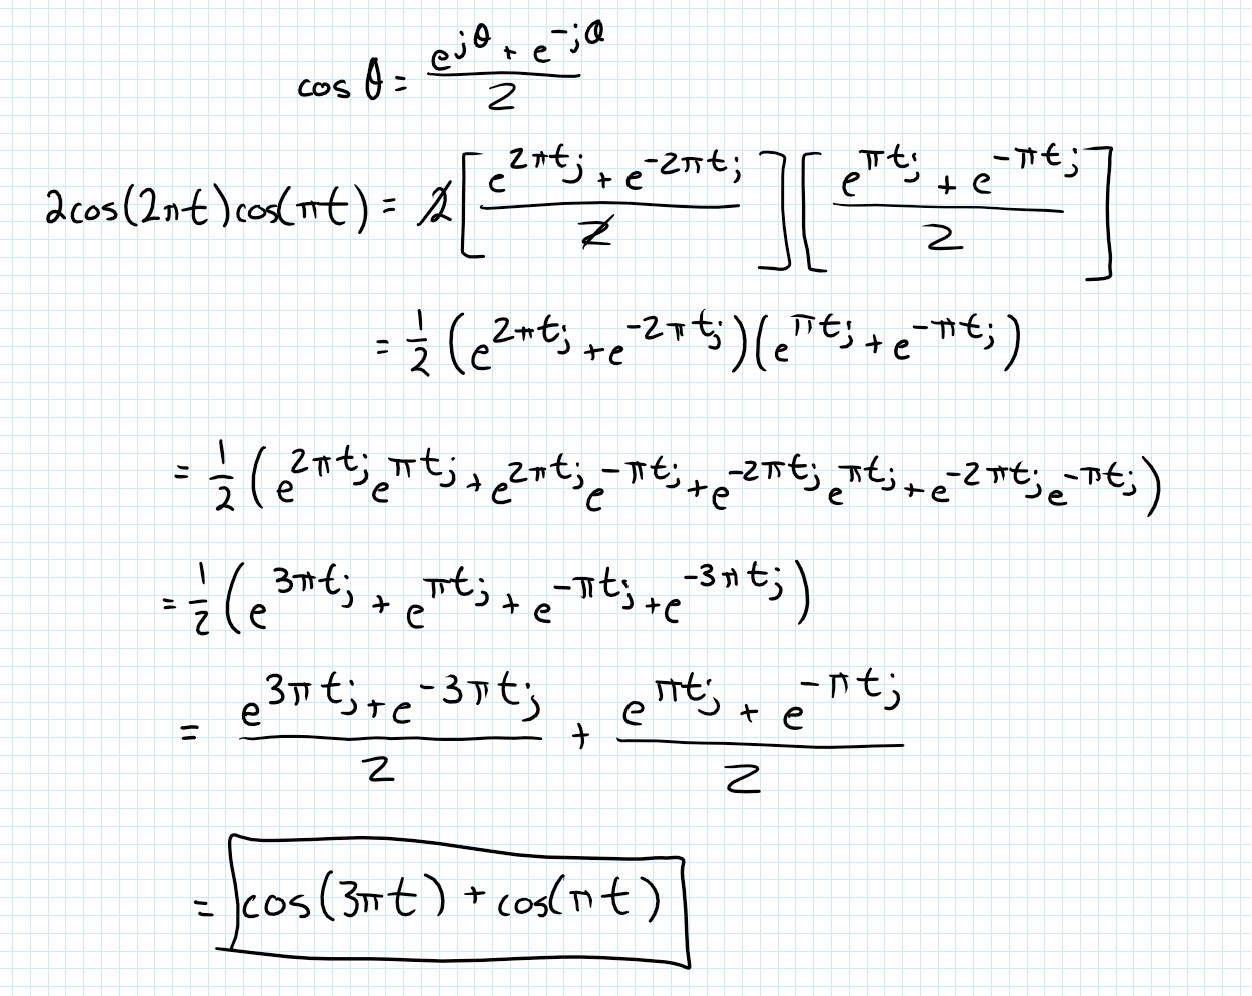 cos θ = (e^{jθ} + e^{-jθ})/2
2cos(2πt)cos(πt) = 2[(e^{2πtj} + e^{-2πtj})/2][(e^{πtj} + e^{-πtj})/2]
= 1/2 (e^{2πtj} + e^{-2πtj})(e^{πtj} + e^{-πtj})
= 1/2 (e^{2πtj} e^{πtj} + e^{2πtj} e^{-πtj} + e^{-2πtj} e^{πtj} + e^{-2πtj} e^{-πtj})
= 1/2 (e^{3πtj} + e^{πtj} + e^{-πtj} + e^{-3πtj})
= (e^{3πtj} + e^{-3πtj})/2 + (e^{πtj} + e^{-πtj})/2
= cos(3πt) + cos(πt)